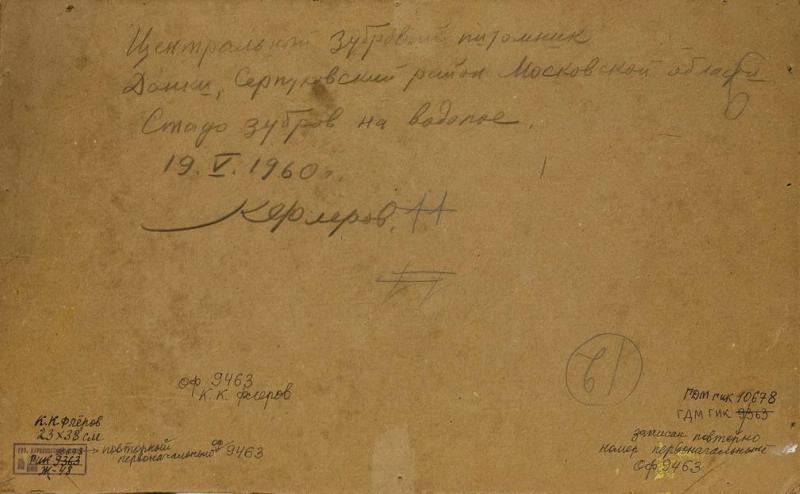 Центральный зубровый питомник
Данки, Серпуховский район Московской области
Стадо зубров на водопое.
19.V.1960г.
КФлеров.
ОФ 9463
К. К. Флеров
ГДМ ГИК 10678
ГДМ ГИК 9363
записан повторно
номер первоначальный
ОФ 9463
К.К Флёров
23х38 см
ГИК 9363
Ж-48
повторный
первоначальный ОФ 9463